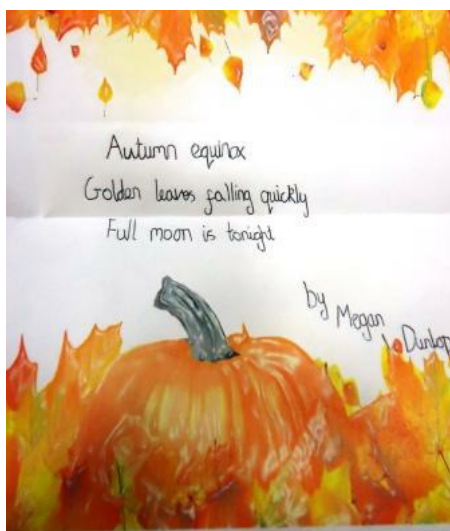 Autumn equinox
Golden leaves falling quickly
Full moon is tonight
by Megan
Dunlop